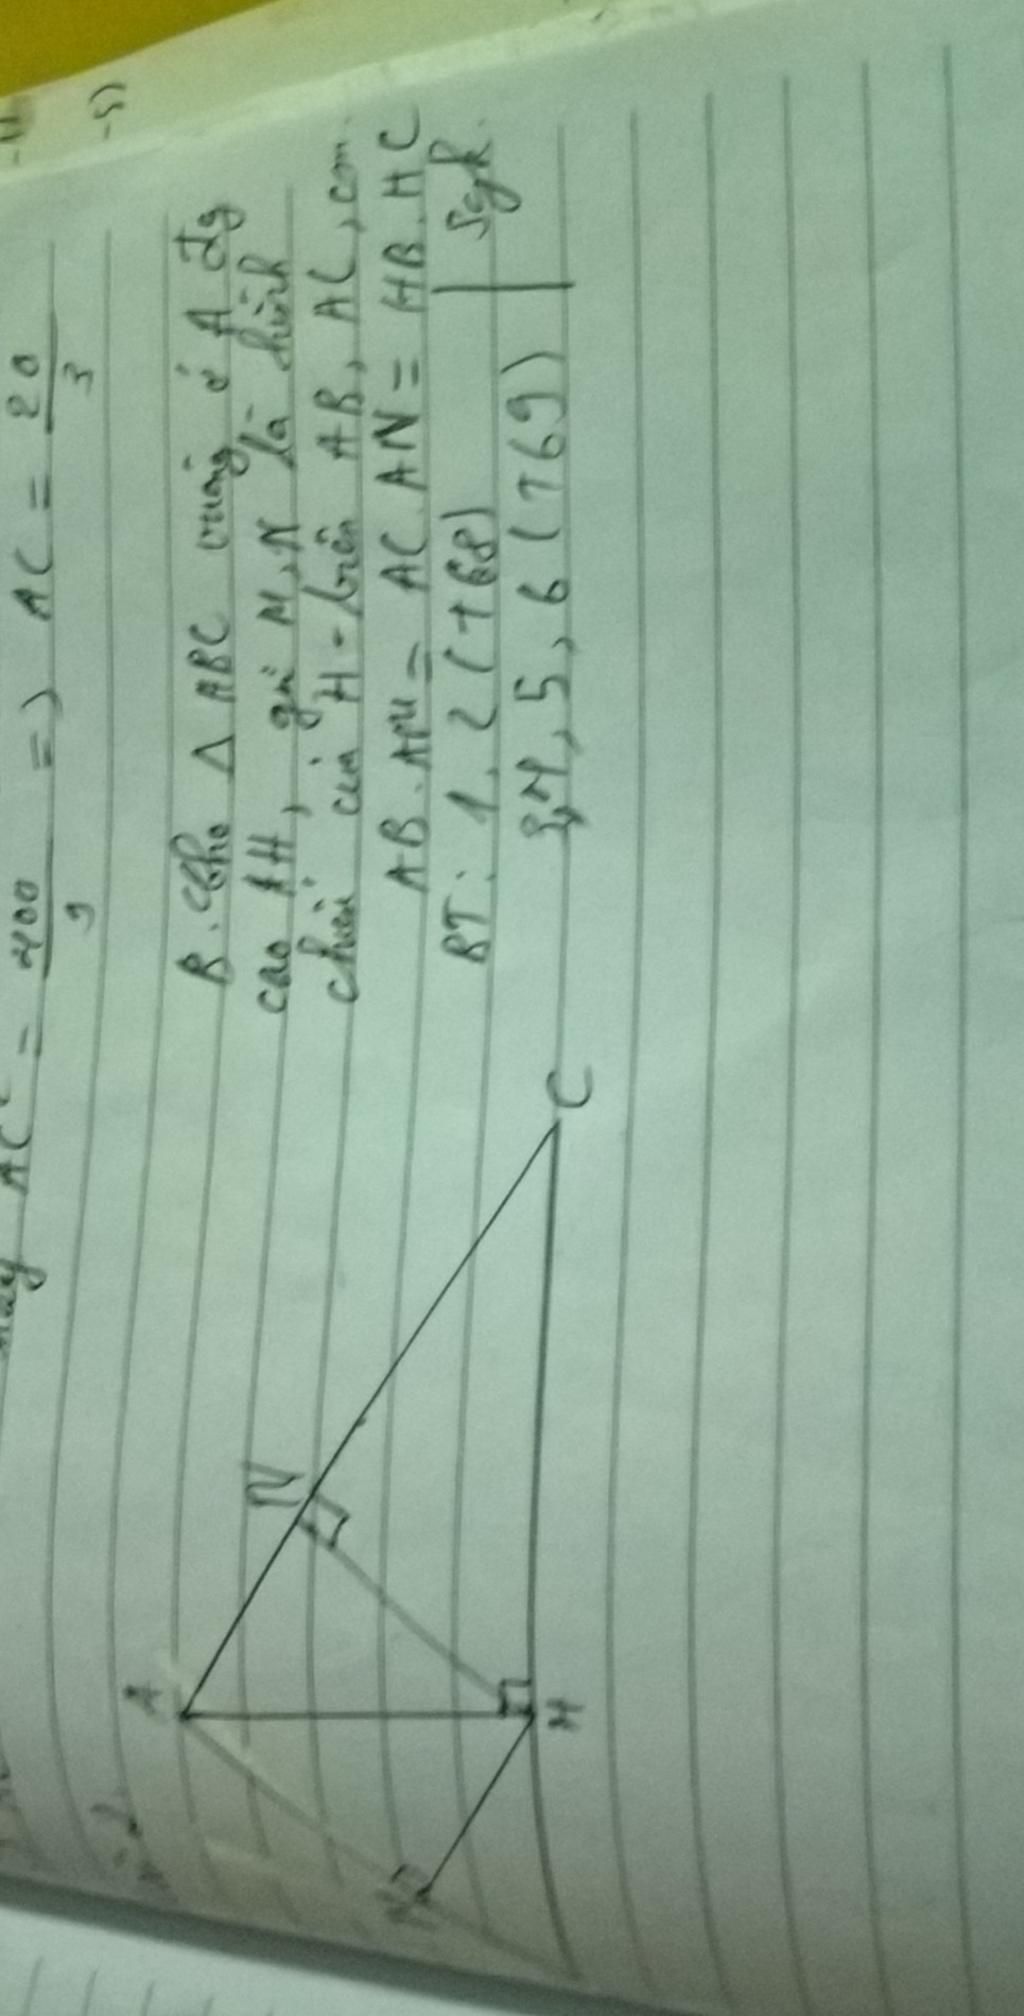 AC² = 400/9 => AC = 20/3
B. Cho Δ ABC vuông ở A đg
cao AH, gọi M, N là hình
chiếu của H trên AB, AC, cm
AB.AM = AC.AN = HB.HC
BT: 1, 2 (T68) | Sgk.
3, 4, 5, 6 (T69) |
A
N
M
H
C